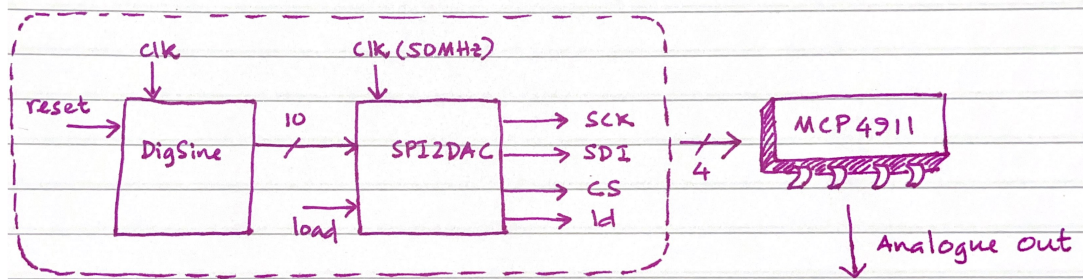 clk
clk (50MHz)
reset
10
DigSine
SPI2DAC
SCK
SDI
CS
ld
load
4
MCP4911
Analogue out